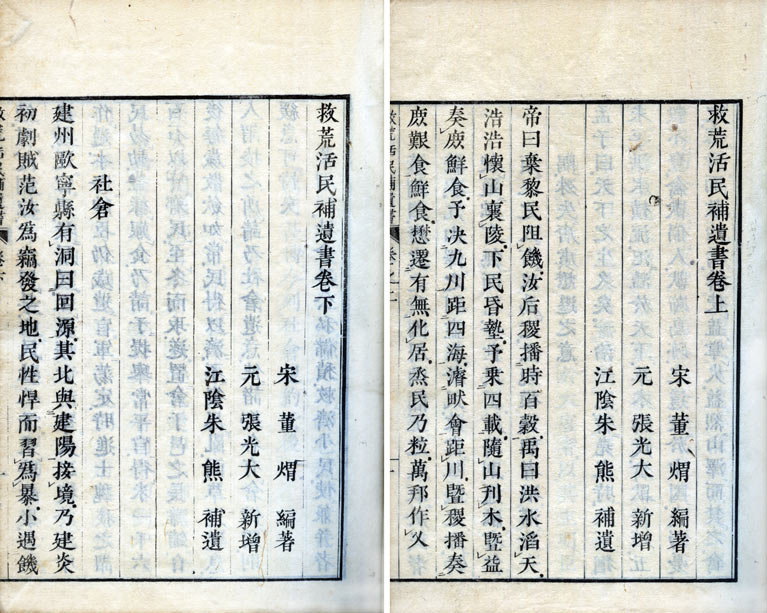 救荒活民補遺書卷上
宋 董 煟 編著
元 張光大 新增
江陰朱 熊 補遺
帝曰棄黎民阻饑汝后稷播時百穀禹曰洪水滔天
浩浩懷山襄陵下民昏墊予乘四載隨山刊木暨益
奏庶鮮食予决九川距四海濬畎澮距川暨稷播奏
庶艱食鮮食懋遷有無化居烝民乃粒萬邦作乂
救荒活民補遺書
救荒活民補遺書卷下
宋 董 煟 編著
元 張光大 新增
江陰朱 熊 補遺
社倉
建州歐寧縣有洞曰回源其北與建陽接境乃建炎
初劇賊范汝爲竊發之地民性悍而習爲暴小遇饑